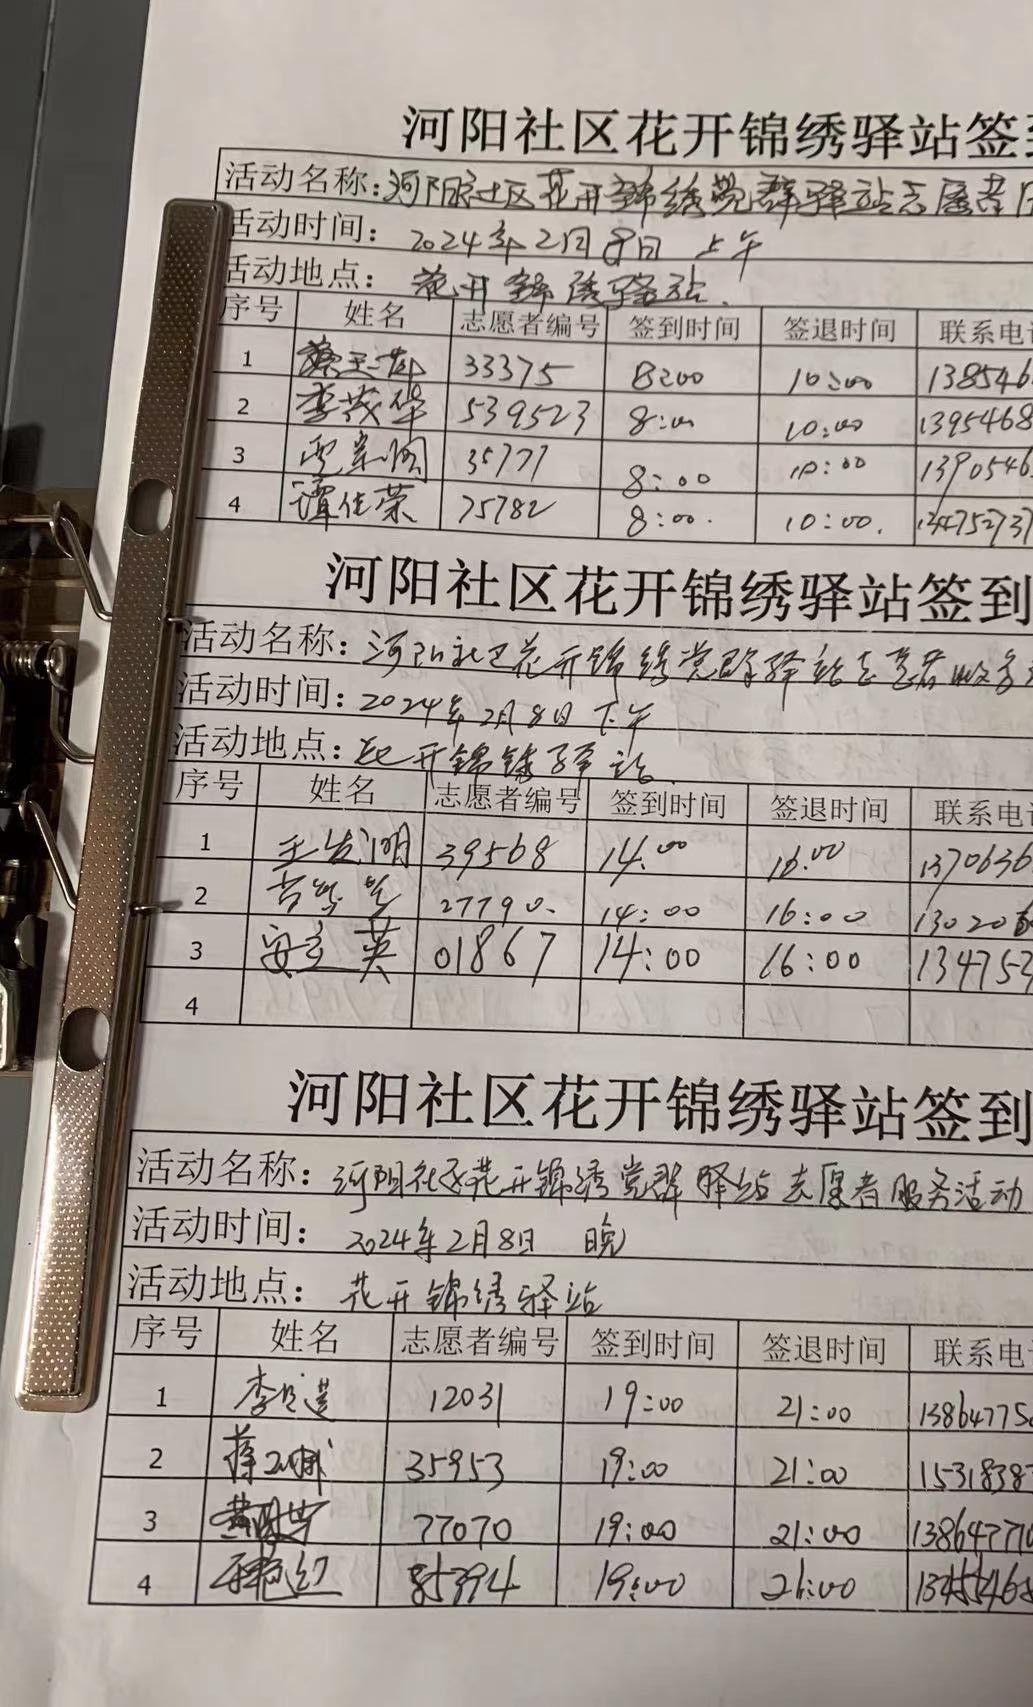 河阳社区花开锦绣驿站签到
活动名称:河阳社区花开锦绣党群驿站志愿者
活动时间: 2024年2月8日 上午
活动地点: 花开锦绣驿站.
序号 姓名 志愿者编号 签到时间 签退时间 联系电话
1 33375 8:00 10:00 138546
2 李茂华 539523 8:00 10:00 1395468
3 35777 8:00 10:00 1390546
4 谭佳荣 75782 8:00. 10:00. 134752737
河阳社区花开锦绣驿站签到
活动名称:河阳社区花开锦绣党群驿站志愿者服务
活动时间:2024年2月8日 下午
活动地点:花开锦绣驿站.
序号 姓名 志愿者编号 签到时间 签退时间 联系电话
1 39568 14:00 16:00 1370636
2 27790. 14:00 16:00 130206
3 安立英 01867 14:00 16:00 134752
4
河阳社区花开锦绣驿站签到
活动名称:河阳社区花开锦绣党群驿站志愿者服务活动
活动时间: 2024年2月8日 晚
活动地点: 花开锦绣驿站
序号 姓名 志愿者编号 签到时间 签退时间 联系电话
1 12031 19:00 21:00 13864775
2 35953 19:00 21:00 15318383
3 77070 19:00 21:00 138647710
4 85394 19:00 21:00 13455465